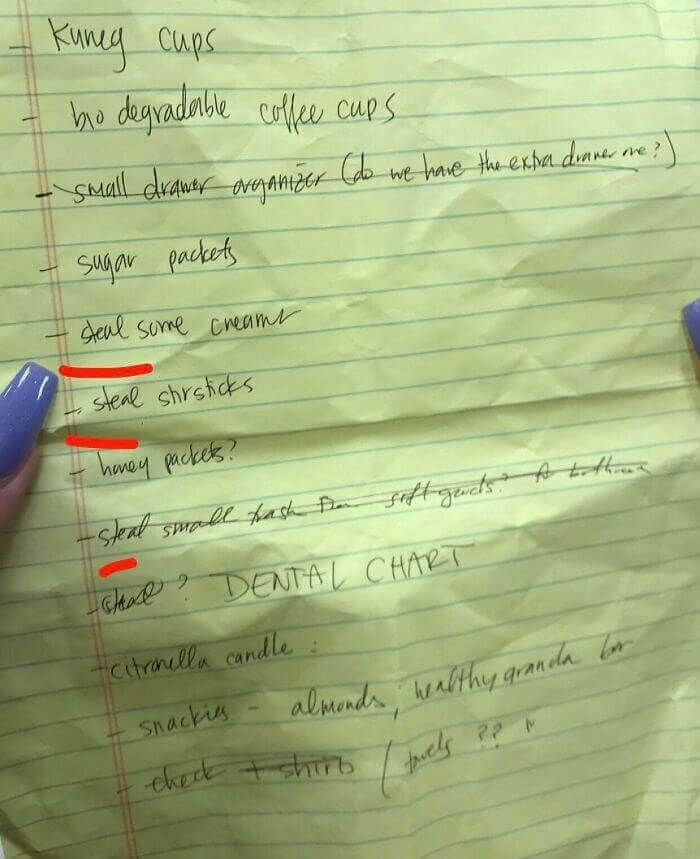 - Kureg cups
- biodegradable coffee cups
- small drawer organizer (do we have the extra drawer one?)
- sugar packets
- steal some creamer
- steal stirsticks
- honey packets?
- steal small trash from soft goods?
- steal? DENTAL CHART
- citronella candle:
- snackies - almonds, healthy granola bar
- check t-shirts / towels ??